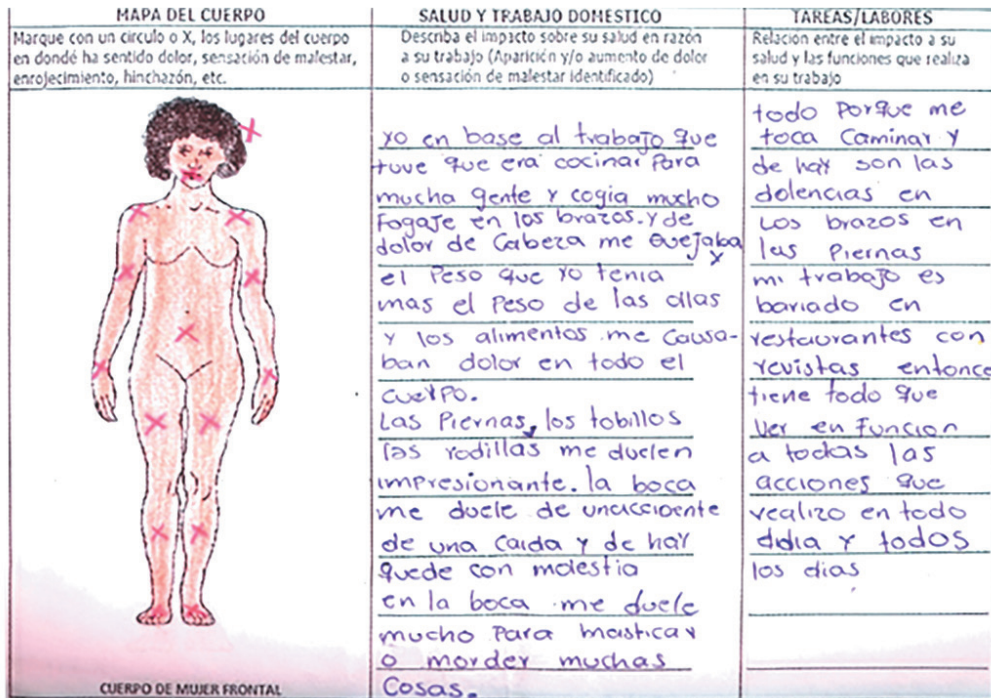 MAPA DEL CUERPO
Marque con un circulo o X, los lugares del cuerpo
en dondé ha sentido dolor, sensación de malestar,
enrojecimiento, hinchazón, etc.
CUERPO DE MUJER FRONTAL
SALUD Y TRABAJO DOMESTICO
Describa el impacto sobre su salud en razón
a su trabajo (Aparición y/o aumento de dolor
o sensación de malestar identificado)
yo en base al trabajo que
tuve que era cocinar Para
mucha gente y cogia mucho
Fogaje en los brazos. y de
dolor de Cabeza me quejaba
y
el Peso que yo tenia
mas el Peso de las ollas
y los alimentos me causa-
ban dolor en todo el
cuerpo.
Las Piernas, los tobillos
las rodillas me duelen
impresionante. la boca
me duele de unaccidente
de una caida y de hay
quede con molestia
en la boca me duele
mucho para masticar
o morder muchas
Cosas.
TAREAS/LABORES
Relación entre el impacto a su
salud y las funciones que realiza
en su trabajo
todo Porque me
toca Caminar y
de hay son las
dolencias en
Los brazos en
las Piernas
mi trabajo es
bariado en
restaurantes con
revistas entonce
tiene todo que
Ver en Funcion
a todas las
acciones que
realizo en todo
didia y todos
los dias